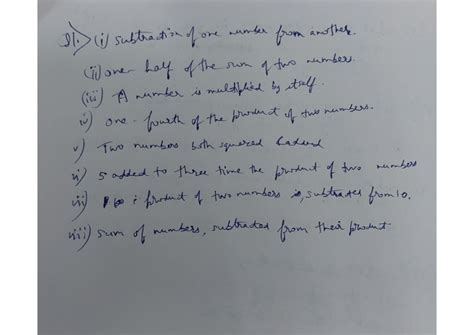 Q1. (i) subtraction of one number from another.
(ii) one-half of the sum of two numbers.
(iii) A number is multiplied by itself.
iv) one-fourth of the product of two numbers.
v) Two numbers both squared & added
vi) 5 added to three time the product of two numbers
vii) product of two numbers, subtracted from 10.
viii) sum of numbers, subtracted from their product.